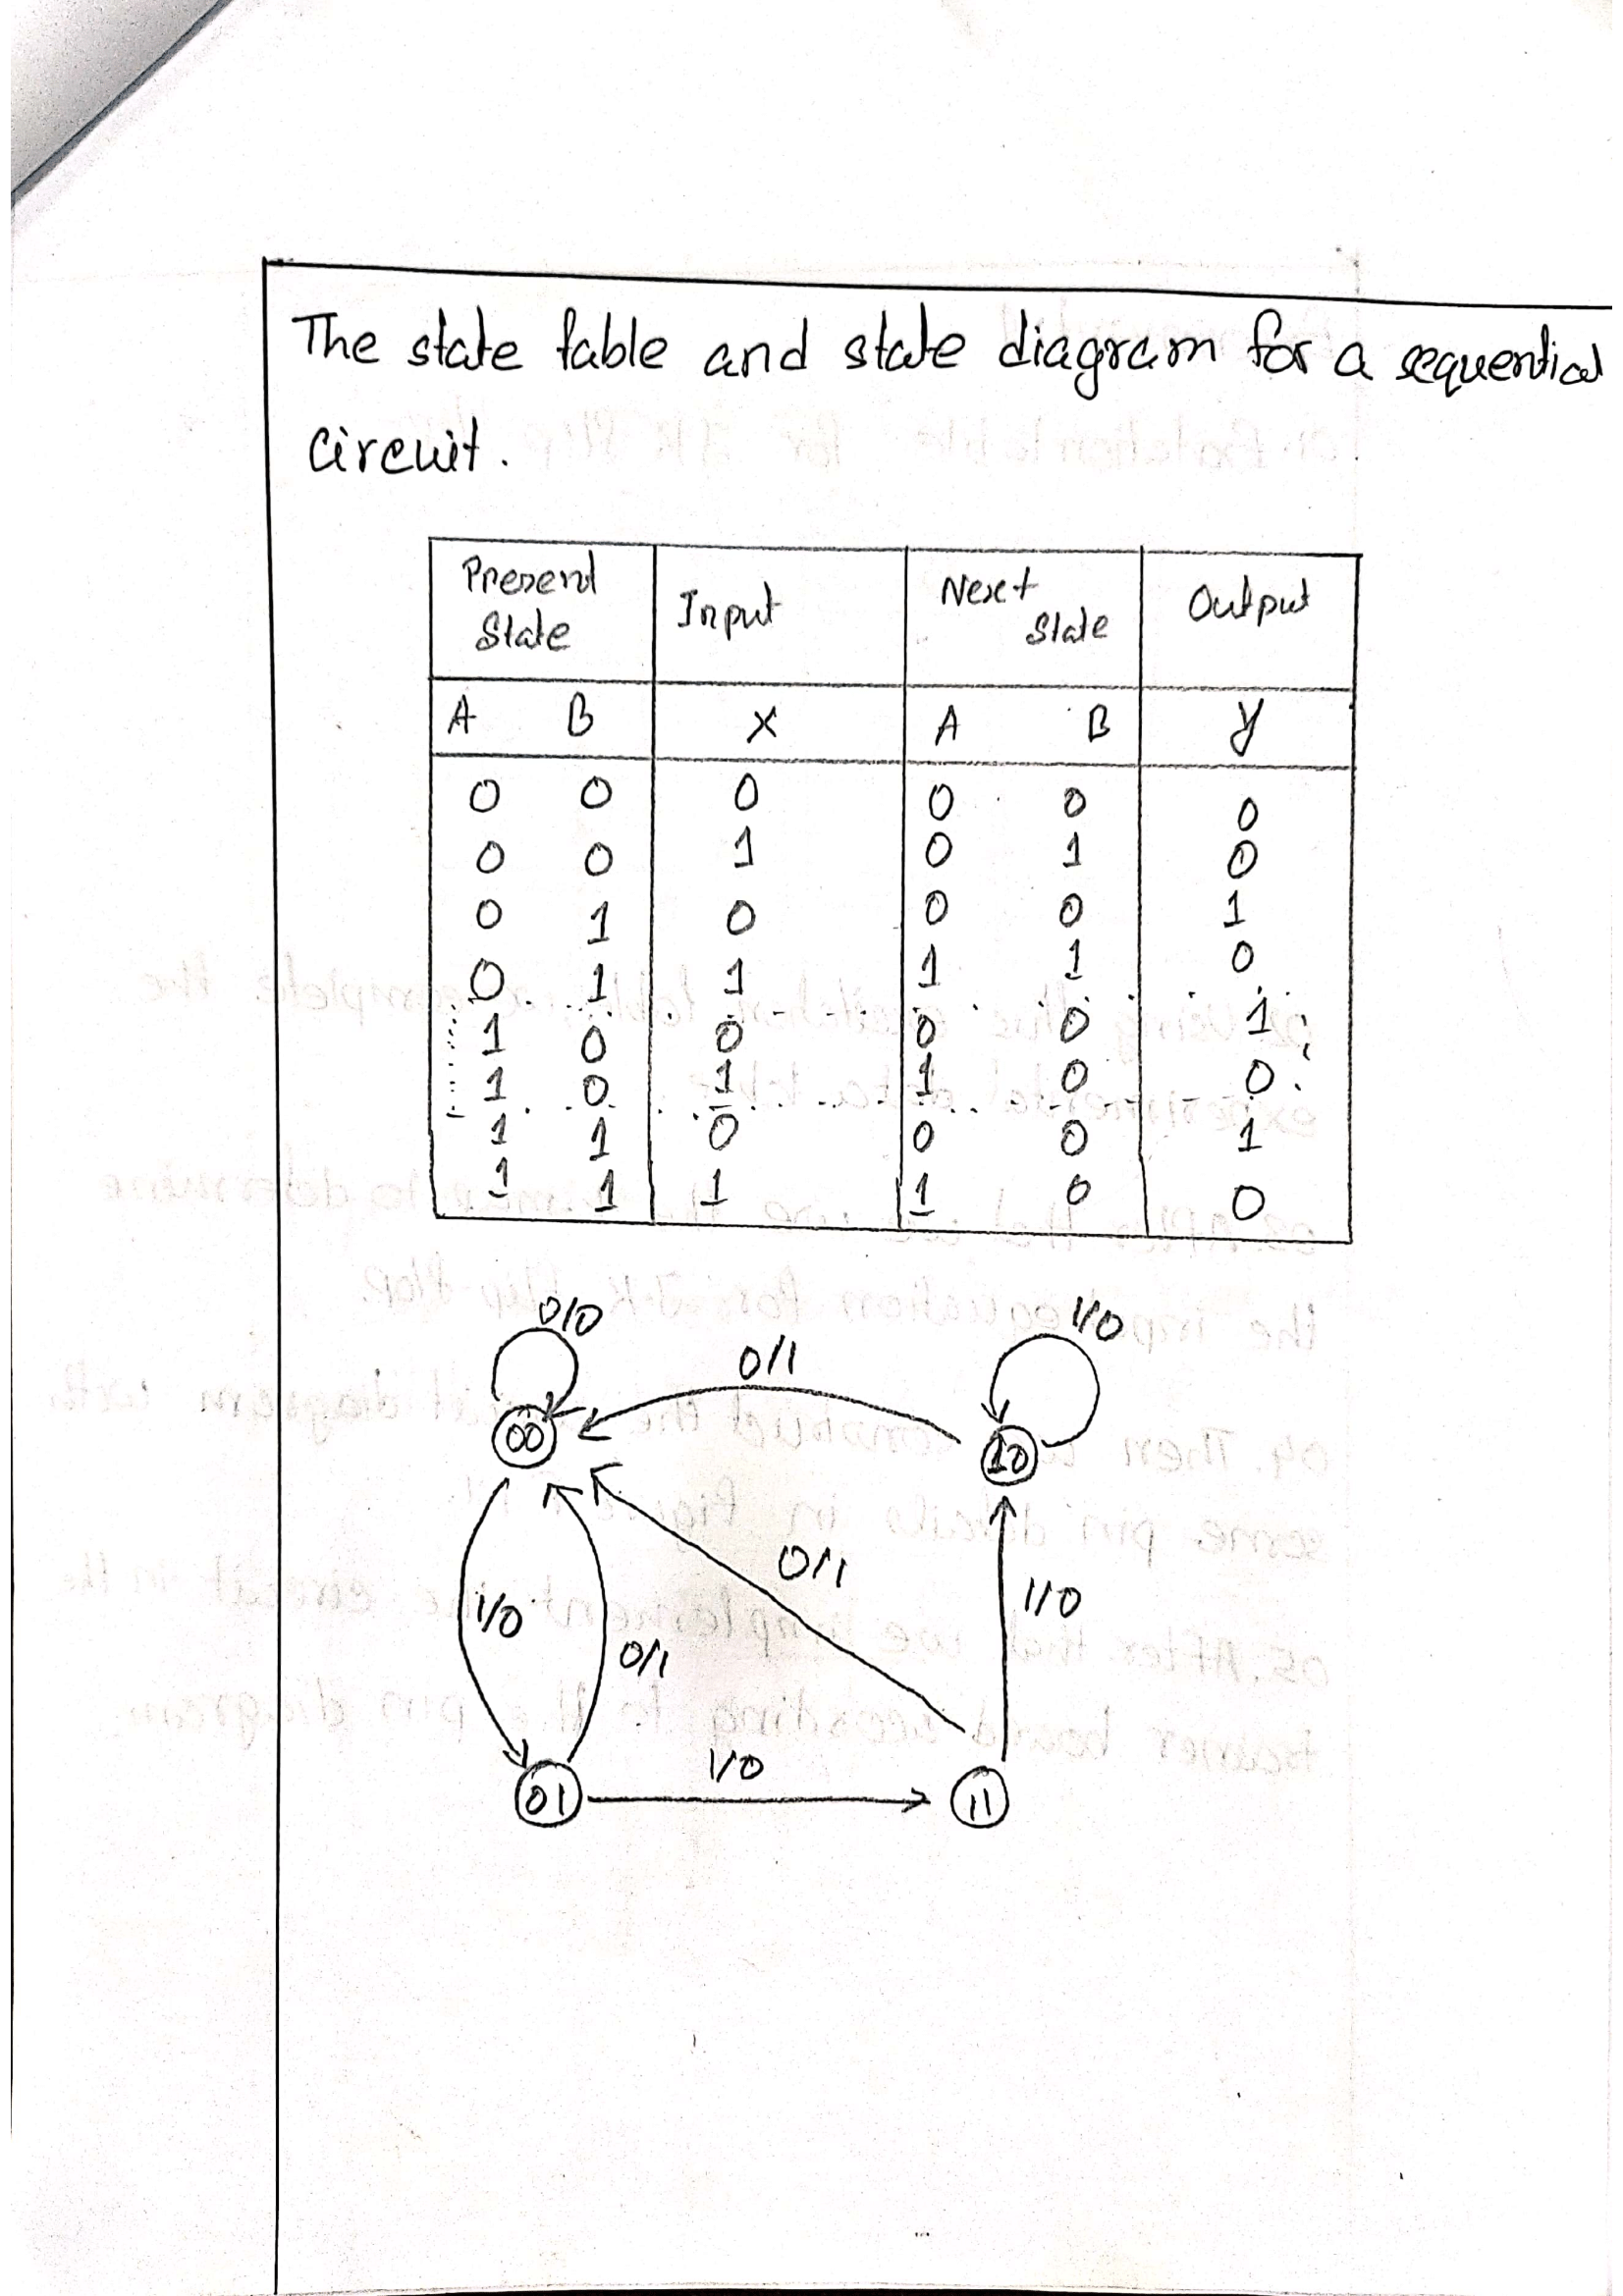 The state table and state diagram for a sequential
circuit.
Present State Input Next State Output
A B X A B y
0 0 0 0 0 0
0 0 1 0 1 0
0 1 0 0 0 1
0 1 1 1 1 0
1 0 0 0 0 1
1 0 1 1 0 0
1 1 0 0 0 1
1 1 1 1 0 0
0/0 1/0
0/1
00 10
0/1
1/0 1/0
0/1
1/0
01 11